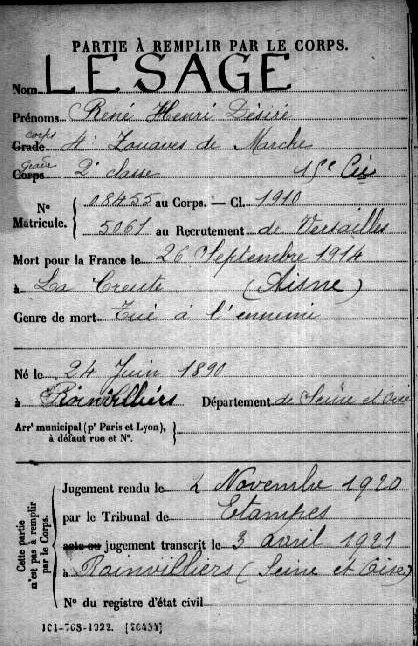 PARTIE À REMPLIR PAR LE CORPS.
Nom LESAGE
Prénoms René Henri Désiré
corps
Grade 4e Zouaves de Marche
Grade
Corps 2e classe 15e Cie
N° Matricule. { 08455 au Corps. — Cl. 1910
5061 au Recrutement de Versailles
Mort pour la France le 26 Septembre 1914
à La Creute (Aisne)
Genre de mort Tué à l'ennemi
Né le 24 Juin 1890
à Roinvilliers Département de Seine et Oise
Arrt municipal (pr Paris et Lyon), à défaut rue et N°. }
Cette partie n'est pas à remplir par le Corps. {
Jugement rendu le 2 Novembre 1920
par le Tribunal de Etampes
acte ou jugement transcrit le 3 avril 1921
à Roinvilliers (Seine et Oise)
N° du registre d'état civil
101-708-1922. [26434]